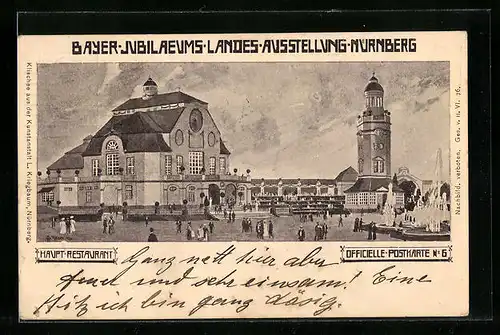 BAYER·JUBILAEUMS·LANDES·AUSSTELLUNG·NÜRNBERG
Klischee aus der Kunstanstalt L. Kriegbaum, Nürnberg.
Nachbild. verboten, Ges. v. 11. VI. 76.
HAUPT-RESTAURANT
OFFICIELLE-POSTKARTE No 6
Ganz nett hier aber
teuer und sehr einsam! Eine
Hitz ich bin ganz dösig.